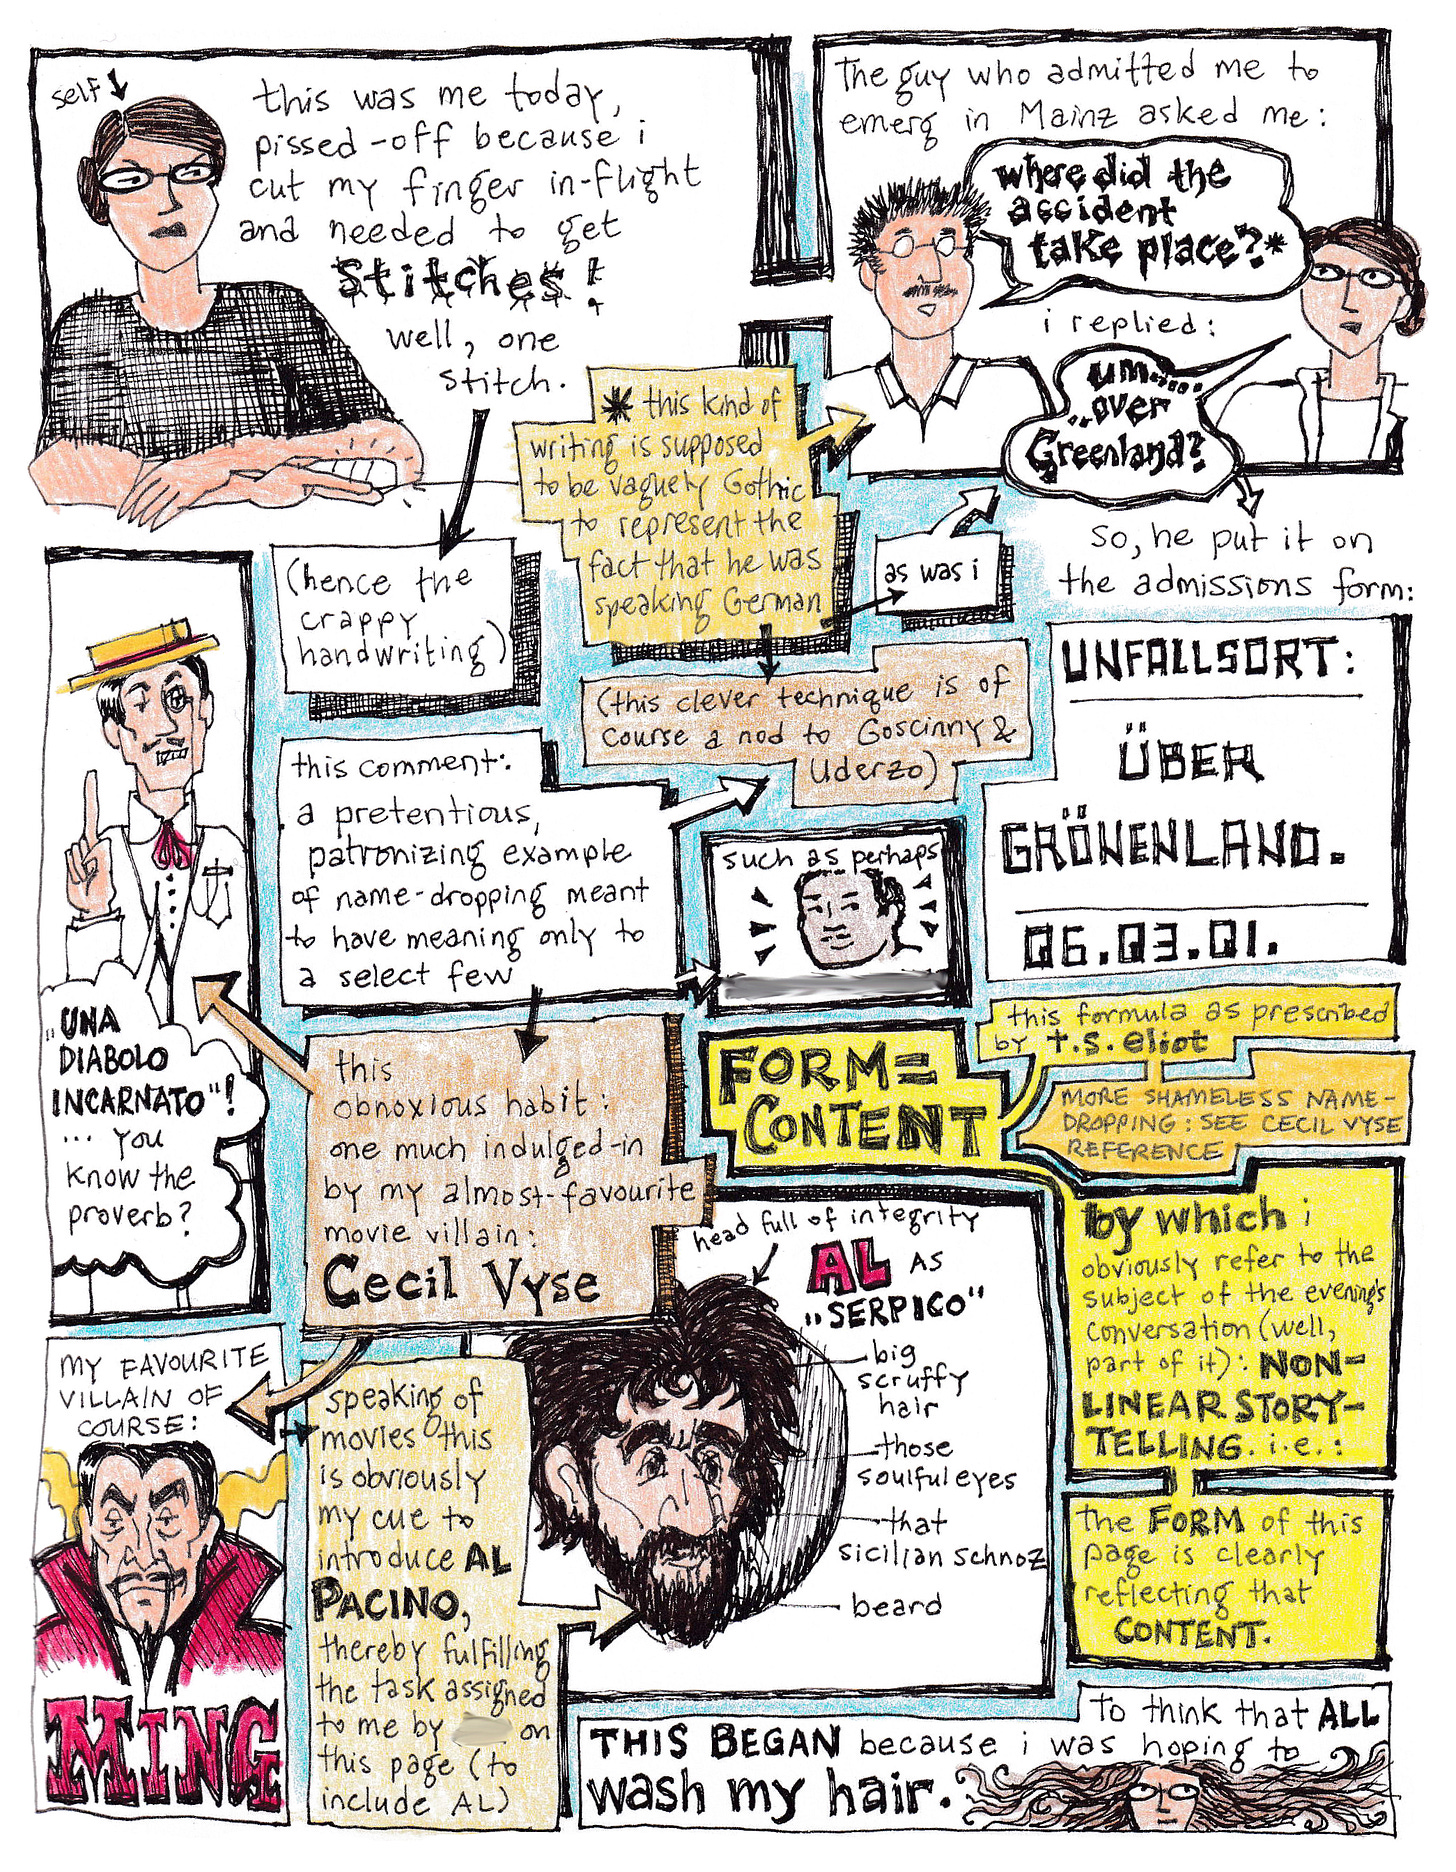 self
this was me today,
pissed-off because i
cut my finger in-flight
and needed to get
Stitches!
well, one
stitch.
The guy who admitted me to
emerg in Mainz asked me:
where did the
accident
take place?*
i replied:
um.....
..over
Greenland?
* this kind of
writing is supposed
to be vaguely Gothic
to represent the
fact that he was
speaking German
as was i
so, he put it on
the admissions form:
UNFALLSORT:
ÜBER
GRÖNENLAND.
06.03.01.
(hence the
crappy
handwriting)
(this clever technique is of
course a nod to Goscinny &
Uderzo)
this comment:
a pretentious,
patronizing example
of name-dropping meant
to have meaning only to
a select few
such as perhaps
„UNA
DIABOLO
INCARNATO"!
... you
know the
proverb?
this
obnoxious habit:
one much indulged-in
by my almost-favourite
movie villain:
Cecil Vyse
FORM=
CONTENT
this formula as prescribed
by t.s. eliot
MORE SHAMELESS NAME-
DROPPING: SEE CECIL VYSE
REFERENCE
by which i
obviously refer to the
subject of the evening's
conversation (well,
part of it): NON-
LINEAR STORY-
TELLING. i.e.:
the FORM of this
page is clearly
reflecting that
CONTENT.
MY FAVOURITE
VILLAIN OF
COURSE:
MING
speaking of
movies this
is obviously
my cue to
introduce AL
PACINO,
thereby fulfilling
the task assigned
to me by on
this page (to
include AL)
head full of integrity
AL AS
„SERPICO"
big
scruffy
hair
those
soulful eyes
that
sicilian schnoz
beard
To think that ALL
THIS BEGAN because i was hoping to
wash my hair.